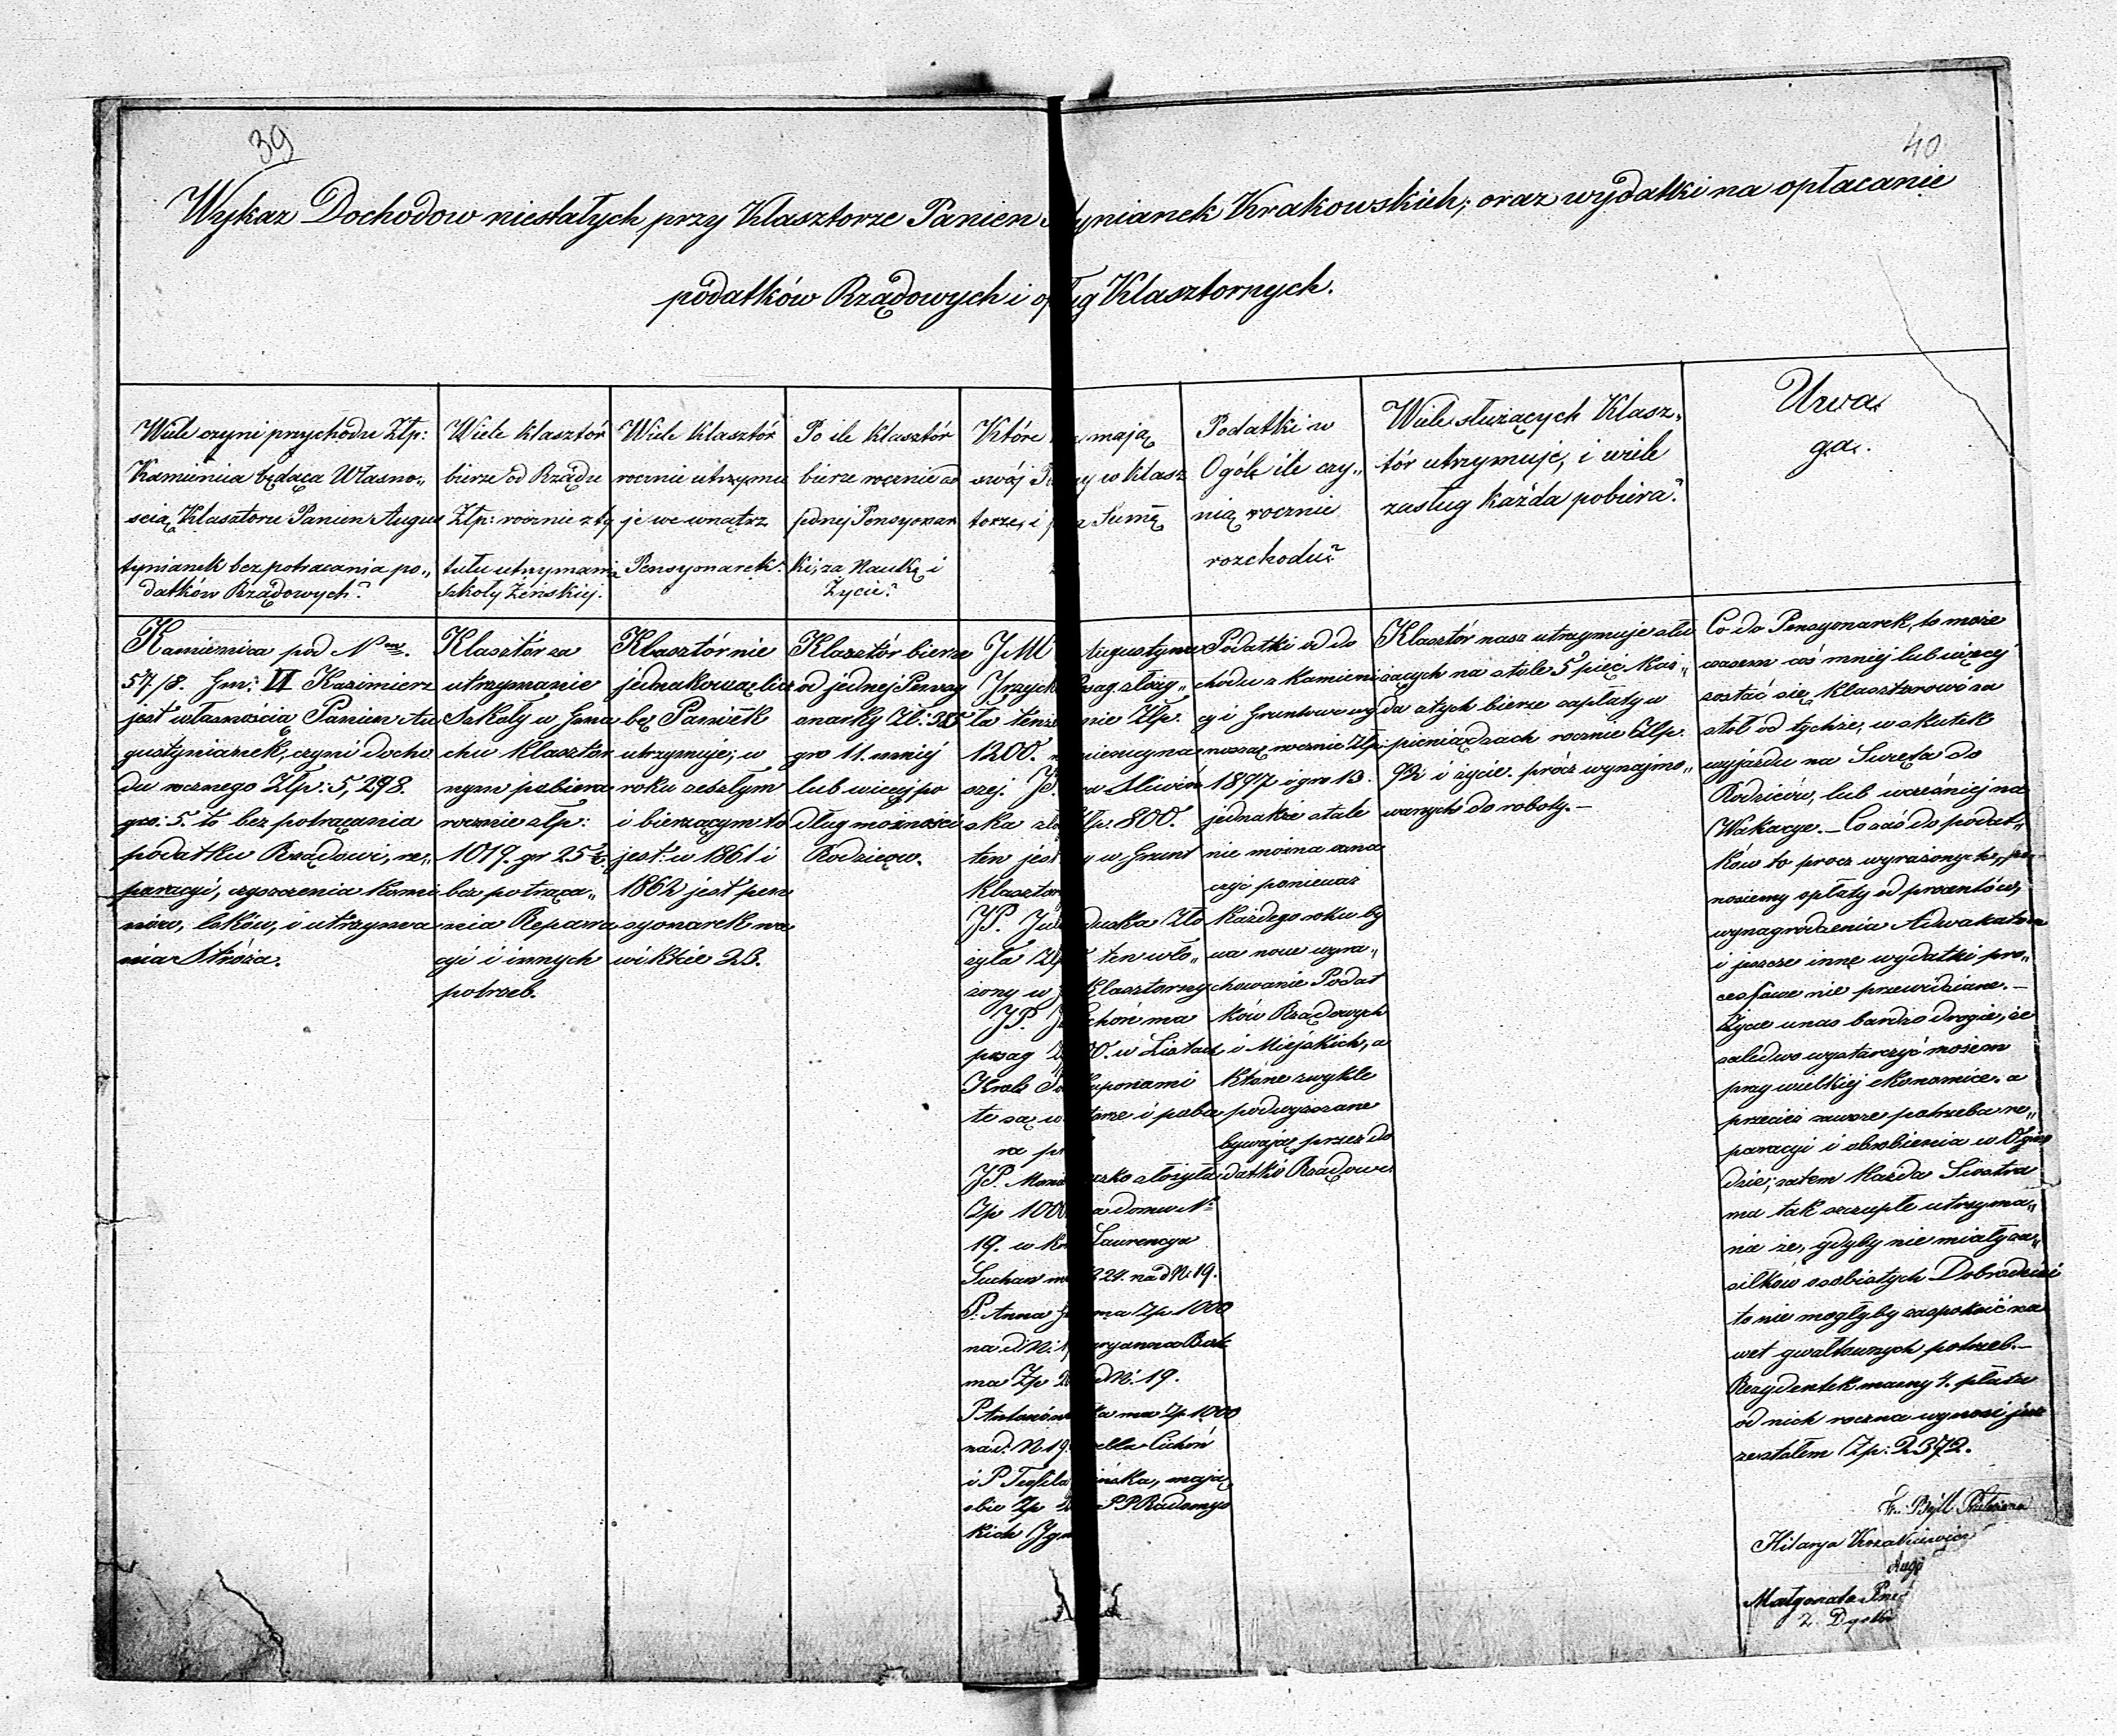 39
40
Wykaz Dochodow niestałych przy Klasztorze Panien ynianek Krakowskich, oraz wydatki na opłacanie
podatków Rządowych i Klasztornych.
Wiele czyni przychodu Złp:
Kamienica będąca Własno„
scią Klasztoru Panien Augus
tynianek bez potracania po„
datków Rządowych?
Wiele Klasztór
bierze od Rządu
Złp: rocznie z ty
tułu utrzymania
Szkoły Żeńskiej.
Wiele Klasztór
rocznie utrzymu
je we wnątrz
Pensyonarek?
Po ile Klasztór
bierze rocznie od
jednej Pensyonar
ki, za Naukę i
Życie?
Które mają
swój w Klasz
torze, i Sumę
Podatki w
Ogóle ile czy„
nią rocznie
rozchodu?
Wiele służących Klasz„
tór utrzymuje, i wiele
zasług każda pobiera?
Uwa„
ga.
Kamienica pod Nrm.
57/8. Gm: VI Kazimierz
jest własnością Panien Au
gustynianek, czyni docho
du rocznego Złp: 5,298.
gro: 5. to bez potrącania
podatku Rządowi, re„
paracyi, czyszczenia komi
nów, loków, i utrzyma
nia Stróża.
Klasztór za
utrzymanie
Szkoły w Gma
chu Klasztor
nym pobiera
rocznie złp:
1019. gr 25 ½
bez potrąca„
nia Repara
cyi i innych
potrzeb.
Klasztór nie
jednakową licz
bę Panièk
utrzymuje; w
roku zeszłym
i bierzącym to
jest: w 1861 i
1862 jest pen
syonarek na
wikkie 23.
Klasztór bierze
od jednej Pensy
onarky Zł: 325
gro 11. mniej
lub więcej po
dług możności
Rodziców.
JMC Augustyna
Jrzych Posag złoży„
ła tenże Złp.
1200.
szej. JP. Sliwiń
ska Złp: 800.
ten jest w Grunt
Klasztor
JP. Zło
żyła ten wło„
żony w Klasztorny
JP. choń ma
posag w Listach
Kuponami
te są w i pobie
ra
JP. złożyła
Zp 1000. domu Nr
19. w Laurencya
Suchan 24. nad N: 19.
P. Anna ma Zp 1000
nad N: 1 ryanna Bat
ma Zp d N: 19.
P Antoni ka ma Zp 1000
nad: N 19. Cichoń
i P Teofila ińska, mają
obie Zp P P Radomys
kich
Podatki od do
chodu z kamieni
cy i Gruntowe wy
noszą rocznie Złp:
1897 i gro 13.
jednakże stale
nie można ozna
czyć ponieważ
każdego roku by
wa nowe wyra„
chowanie Podat
ków Rządowych
i Miejskich, a
które zwykle
podwyższane
bywają przez do
datki Rządowe
Klasztór nasz utrzymuje słu
żących na stole 5 pięć każ„
da z tych bierze zapłaty w
pieniądzach rocznie Złp.
92 i życie. prócz wynajmo„
wanych do roboty.—
Co do Pensyonarek, to może
czasem coś mniej lub więcej
zostać się Klasztorowi za
stoł od tychże, w skutek
wyjazdu na Święta do
Rodziców, lub wcześniej na
Wakacye.— Co zaś do podat„
ków to procz wyrażonych, po
nosiemy opłaty od procentów,
wynagrodzenia Adwokatom
i jeszcze inne wydatki pro„
cesSowe nie przewidziane.—
Życie u nas bardzo drogie, że
zaledwo wystarczyć możem
przy wielkiej ekonomice. a
przecież zawsze potrzeba re„
paracyi i obrobienia w Ogro
dzie; zatem Każda Siostra
ma tak szczupłe utrzyma„
nia że, gdyby nie miały za„
siłkow osobistych Dobrodziei
to nie mogłyby zaspokoić na
wet gwałtownych potrzeb.—
Rezydentek mamy 4. płaca
od nich roczna wynosi już
ze stołem Zp: 2372.
Hilarya Kozakiewicz
Aug:
Małgorzata